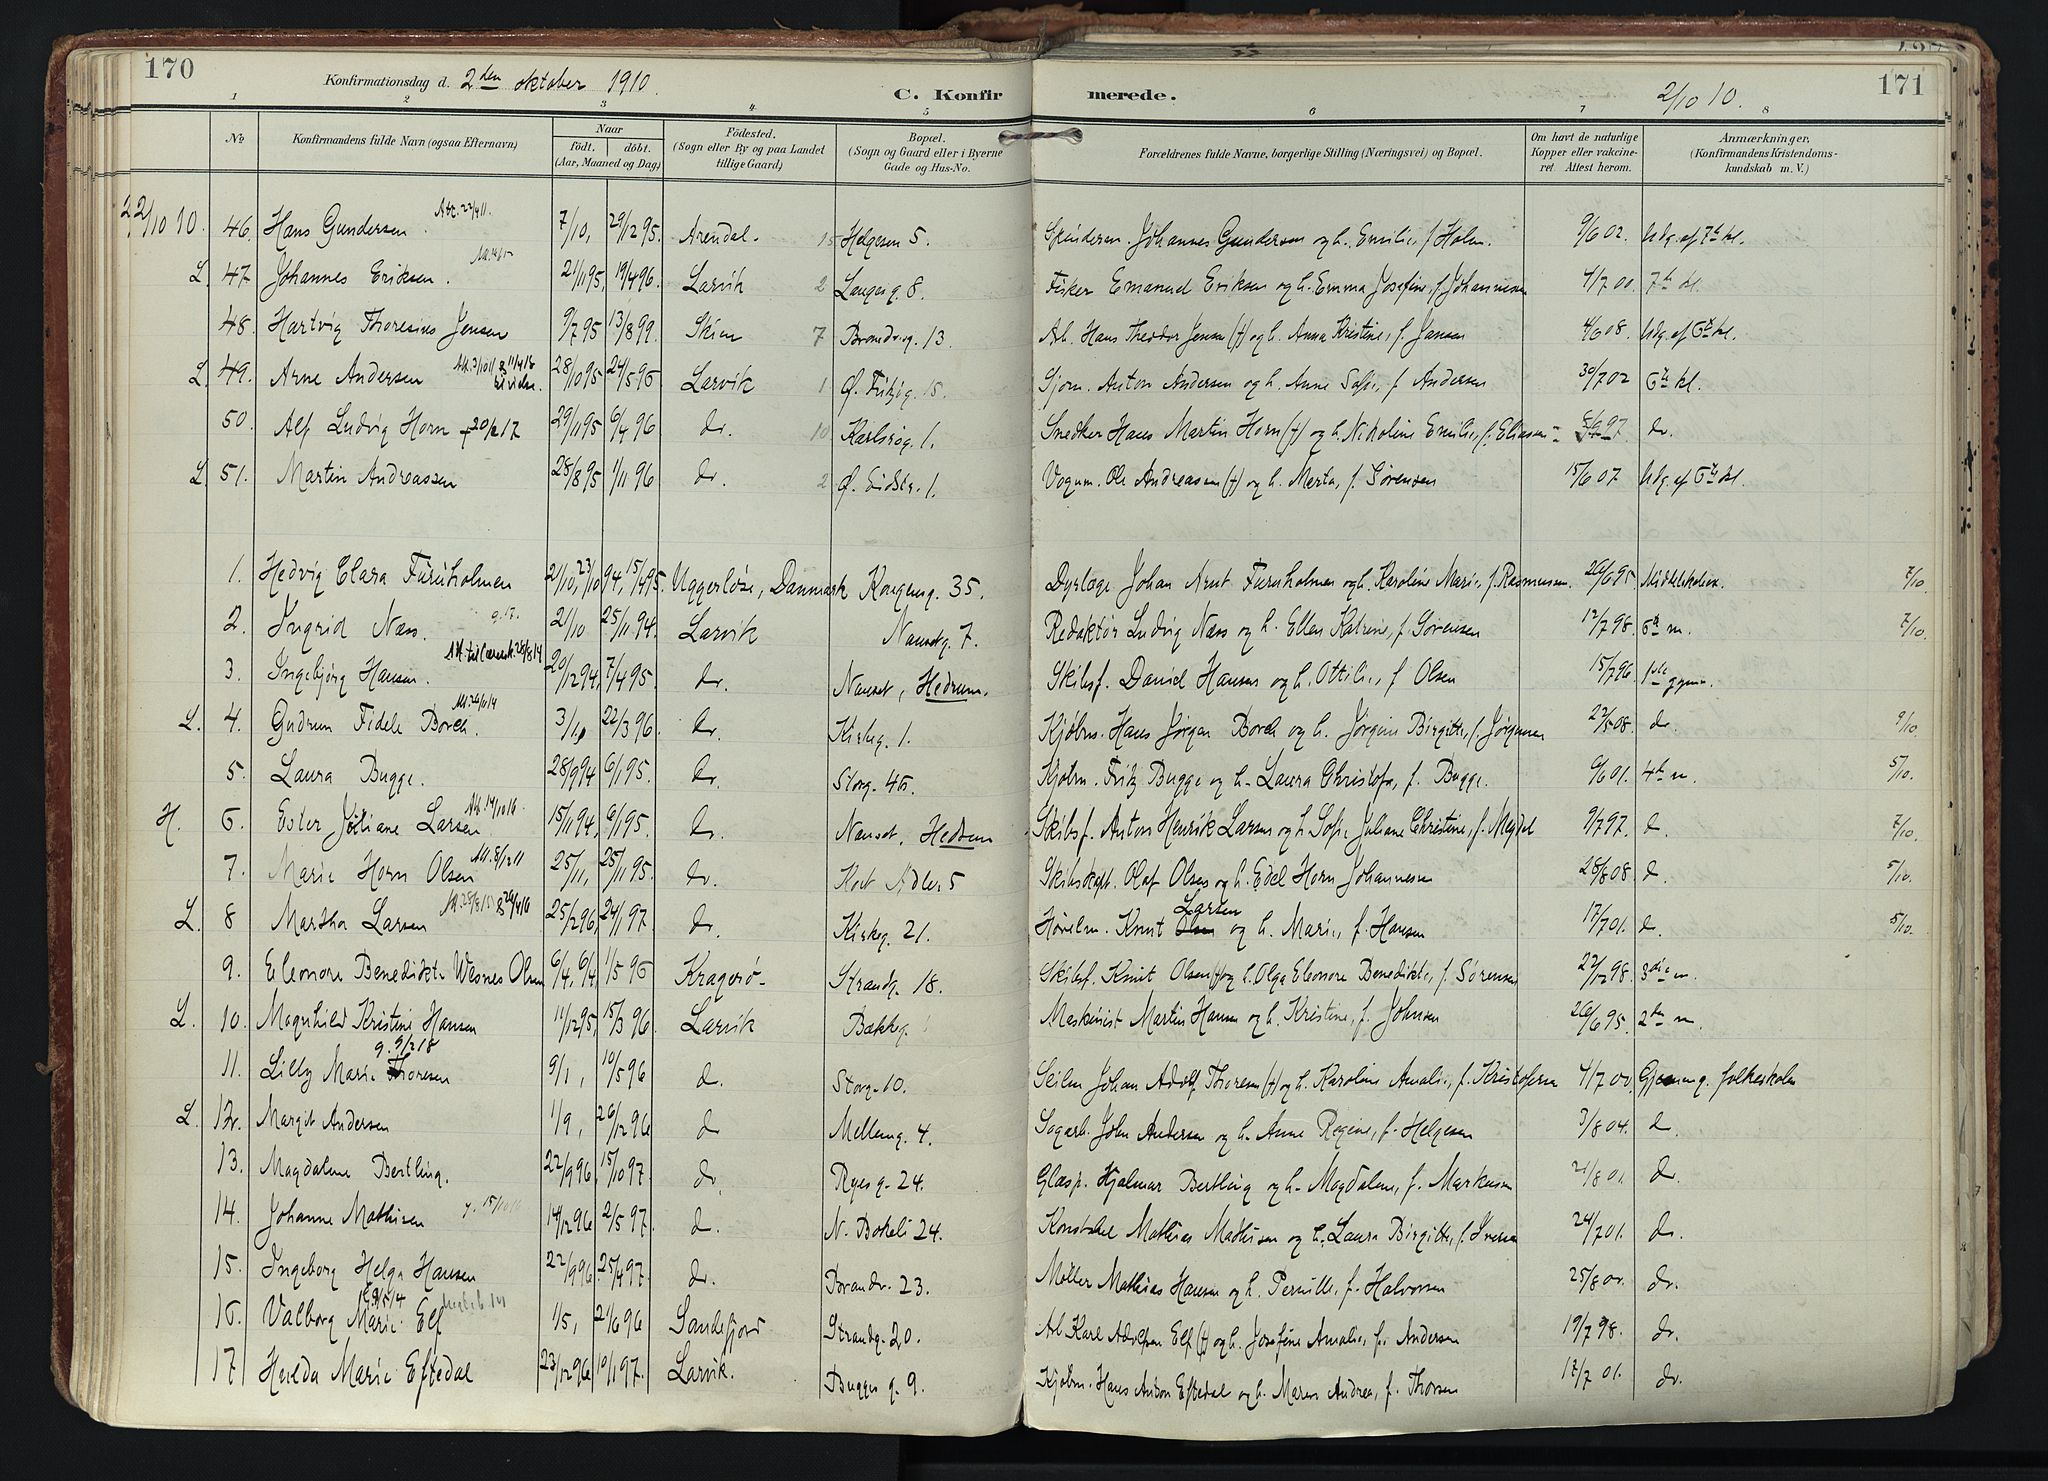 170
Konfirmationsdag d. 2den oktober 1910.
C. Konfirmerede.
2/10 10.
171
1 2 3 4 5 6 7 8
No
Konfirmandens fulde Navn (ogsaa Efternavn)
Naar født. døbt. (Aar, Maaned og Dag)
Fødested. (Sogn eller By og paa Landet tillige Gaard)
Bopæl. (Sogn og Gaard eller i Byerne Gade og Hus-No.
Forældrenes fulde Navne, borgerlige Stilling (Næringsvei) og Bopæl.
Om havt de naturlige Kopper eller vakcineret. Attest herom.
Anmærkninger, (Konfirmandens Kristendomskundskab m. V.)
2/10 10. 46. Hans Gundersen. 7/10, 29/12 95. Arendal. 15 Helgesen 5. Johannes Gundersen og h. Emilie, f. Holm. 9/6 02. udg. af 7de kl.
L. 47 Johannes Eriksen. 21/11 95, 19/4 96. Larvik 2 Langesg. 8. Fisker Emanuel Eriksen og h. Emma Josefine, f. Johannesen 4/7 00. 7de kl.
48. Hartvig Thoresius Jensen 9/7 95 13/8 99. Skien 7 Brandvg. 13. Arb. Hans Theodor Jensen (†) og h. Anna Kristine, f. Jansen 4/6 08. udg. af 6te kl.
L. 49. Arne Andersen 28/10 95 24/5 96 Larvik 1 Ø. Fritzøg. 15. Sjøm. Anton Andersen og h. Anne Sofie, f. Andersen 30/7 02 6te kl.
50. Alf Ludvig Horn † 20/2 17 29/11 95 6/4 96 do. 10 Karlsrog. 1. Snedker Hans Martin Horn (†) og h. Nikoline Emilie, f. Eliassen 8/9 97. do.
L. 51. Martin Andreassen 28/8 95 1/11 96 do. 2 Ø. Eidstr. 1. Vognm. Ole Andreassen (†) og h. Marta, f. Sørensen 15/6 07 udg. af 6te kl.
1. Hedvig Clara Furuholmen 21/10, 23/10 94, 15/4 95. Uggerløse, Danmark Kongensg. 35. Dyrlæge Johan Arnt Furuholmen og h. Karoline Marie, f. Rasmussen. 26/6 95 Middelskoleex. 7/10.
2. Ingrid Næss. 21/10 25/11 94. Larvik Nansetg. 7. Redaktør Ludvig Næss og h. Ellen Katrine, f. Sørensen 12/7 98. 6te m. 7/10.
3. Ingebjørg Hansen. 20/12 94, 7/4 95. do. Nanset, Hedrum. Skibsf. Daniel Hansen og h. Ottilie, f. Olsen 15/7 96 1ste gymn.
L. 4. Gudrun Fidele Borch. 3/1, 22/3 96. do. Kirkeg. 1. Kjøbm. Hans Jørgen Borch og h. Jørgine Birgitte, f. Jørgensen 22/5 08. do. 9/10.
5. Laura Bugge. 28/9 94 6/1 95. do. Storg. 46. Kjøbm. Fritz Bugge og h. Laura Christofa, f. Bugge. 6/6 01. 4de m. 5/10.
H. 6. Ester Juliane Larsen. 15/11 94, 6/1 95. do. Nanset, Hedrum Skibsf. Anton Henrik Larsen og h. Sofie Juliane Christine, f. Meydel 9/7 97. do. 7/10.
7. Marie Horn Olsen 25/11, 25/11 95. do. Kort Adler 5 Skibskapt. Olaf Olsen og h. Edel Horn Johannesen 28/8 08. do. 5/10.
L. 8 Martha Larsen 25/2 96, 24/1 97 do. Kirkeg. 21. Høvilm. Knut Larsen og h. Marie, f. Hansen 17/7 01. do. 5/10.
9. Eleonore Benedikte Wesnes Olsen 6/4, 6/4 1/5 96 Kragerø Strandg. 18. Skibsf. Knut Olsen (†) og h. Olga Eleonore Benedikte, f. Sørensen 22/12 98. 3die m.
L. 10. Magnhild Kristine Hansen 11/12 95, 15/3 96. Larvik Bækkeg. Maskinist Martin Hansen og h. Kristine, f. Johnsen 26/6 95. 2den m.
g. 9/2 18
11. Lilly Marie Thoresen 9/1, 10/5 96 do. Storg. 10. Seilm. Johan Adolf Thoresen (†) og h. Karoline Amalie, f. Kristofersen 4/7 00. Gjennemg. folkeskolen
L. 12. Margit Andersen 1/9, 26/12 96 do Mellemg. 4. Sagarb. John Andersen og h. Anne Regine, f. Helgesen 3/8 04. do.
13. Magdalene Bertling. 22/9 96, 15/10 97. do. Ryesg. 24. Glasp. Hjalmar Bertling og h. Magdalene, f. Markussen 21/8 01. do.
14. Johanne Mathisen 14/12 96 2/5 97. do. N. Bøkeli 24. Konstabel Mathias Mathisen og h. Laura Birgitte, f. Iversen 24/7 01. do.
15. Ingeborg Helga Hansen 22/9 96. 25/4 97. do. Brandv. 23. Møller Mathias Hansen og h. Pernille, f. Halvorsen 25/8 00. do.
16. Valborg Marie Elf 1/5, 21/6 96 Sandefjord Strandg. 20. Arb Karl Adolfsen Elf (†) og h. Josefine Amalie, f. Andersen 19/7 98. do.
17 Hulda Marie Eftedal 23/12 96 10/1 97. Larvik. Bugges g. 9. Kjøbm. Hans Anton Eftedal og h. Maren Andrea, f. Thorsen 17/7 01. do.